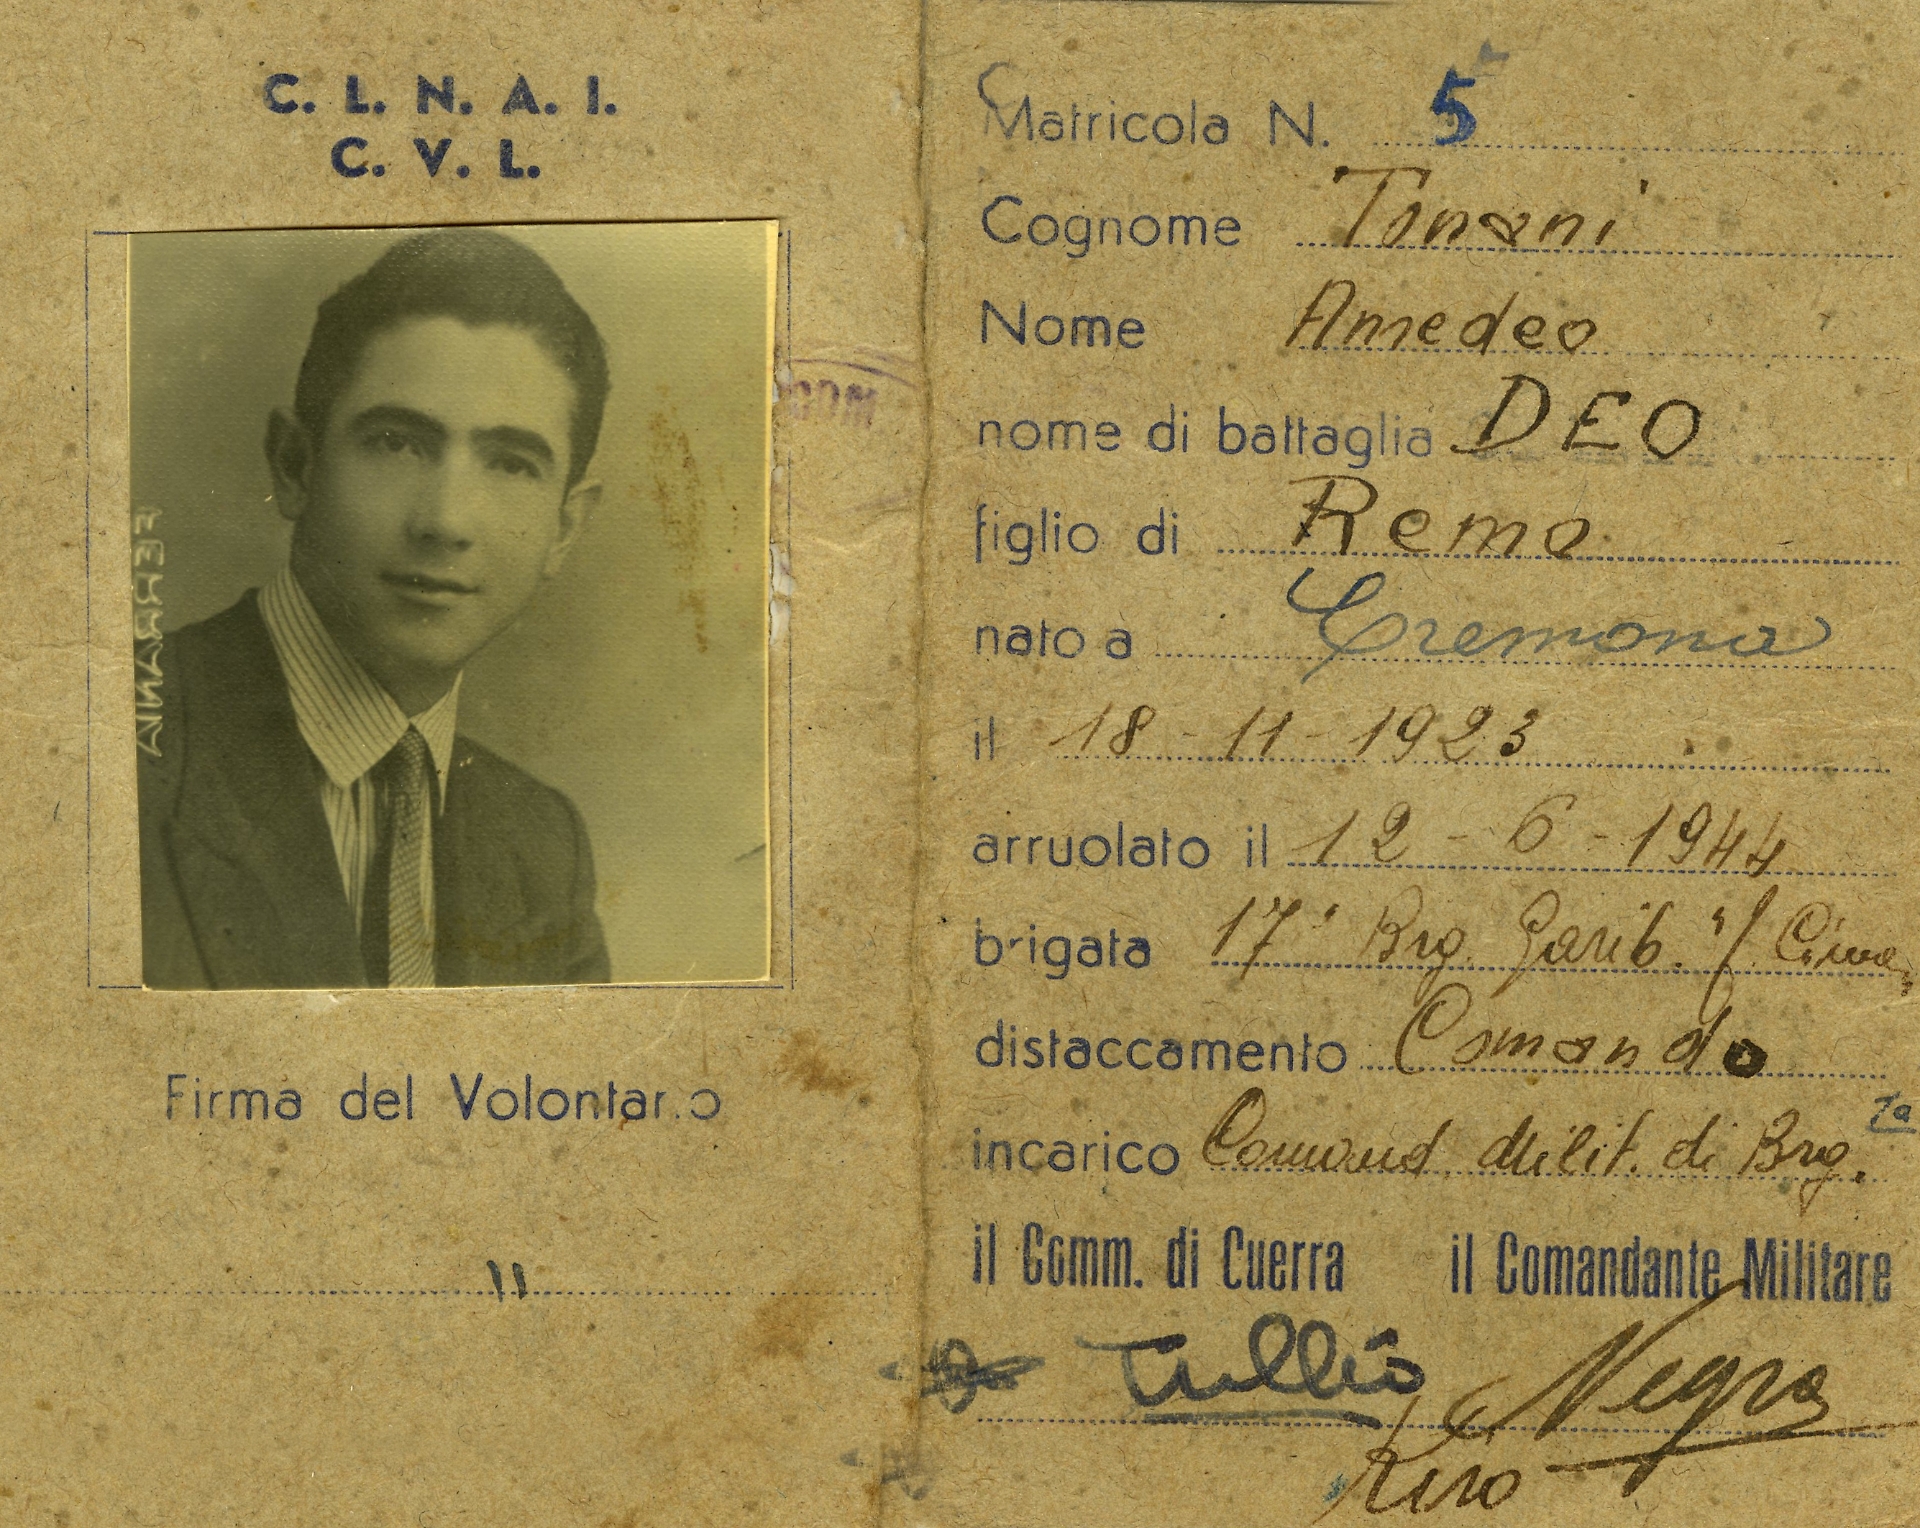 C. L. N. A. I.
C. V. L.
FERRANIA
COM
Firma del Volontario
Matricola N. 5
Cognome Tonani
Nome Amedeo
nome di battaglia DEO
figlio di Remo
nato a Cremona
il 18-11-1923
arruolato il 12-6-1944
brigata 17ª Brg. Garib. "F. Cima"
distaccamento Comando
incarico Comand. Milit. di Brg.
il Comm. di Guerra il Comandante Militare
Tullio Negro
Kiro